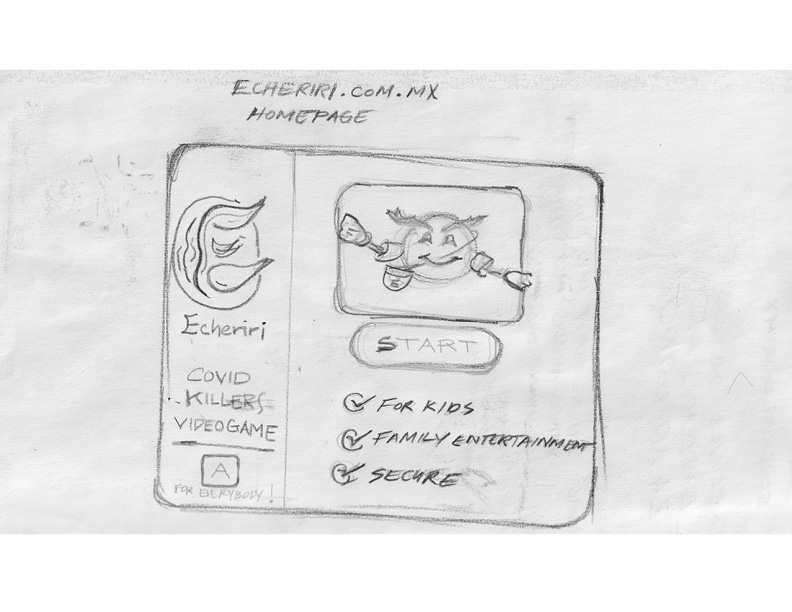 ECHERIRI.COM.MX
HOMEPAGE
Echeriri
COVID
KILLERS
VIDEOGAME
A
FOR EVERYBODY!
START
FOR KIDS
FAMILY ENTERTAINMENT
SECURE